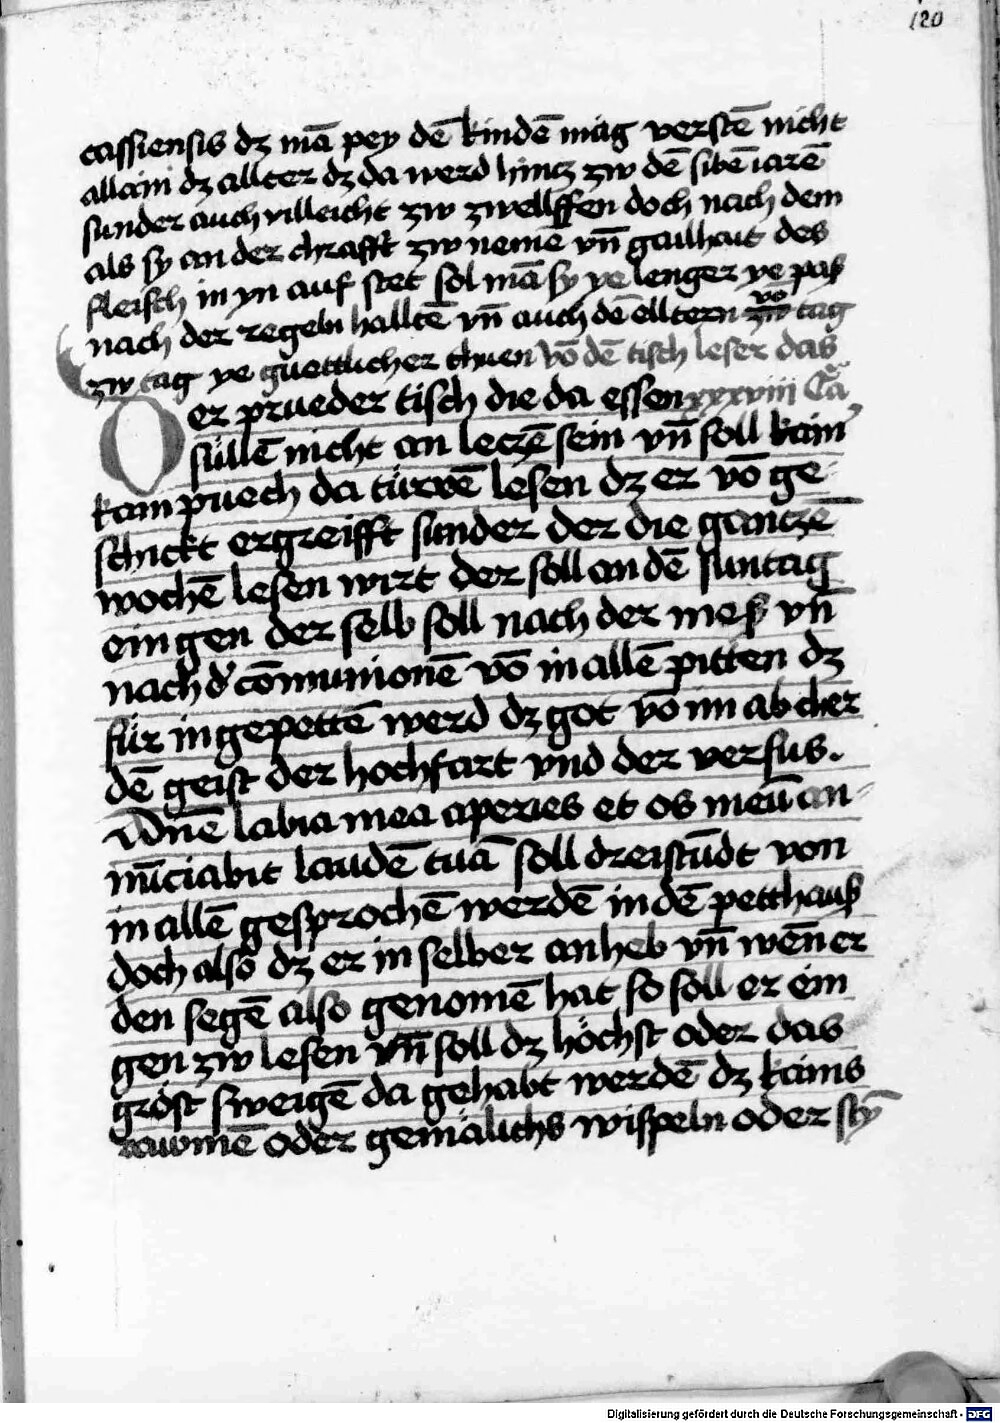 120
cassiensis dz mā pey dē kindē mag verstē nicht
allain dz allter dz da werd hintz zw dē sibē iarē
sunder auch villeicht zw zwellffen doch nach dem
als sy an der chrafft zw nemē vn̄ gailhait des
fleisch in yn auf stet sol mā sy ye lenger ye pas
nach der regeln halltē vn̄ auch dē elltern zw vō tag
zw tag ye guettlicher thuen vō dē tisch leser das
er prueder tisch die da essen xxxviii Ca
süllē nicht an leczē sein vn̄ soll kain
kam puech da türrē lesen dz er vō ge
schickt ergreifft sunder der die gantzē
wochē lesen wirt der soll an dē suntag
ein gen der selb soll nach der mess vn̄
nach d' cōmunionē vō in allē pitten dz
für in gepettē werd dz got vō im ab cher
dē geist der hochfart vnd der versus.
Dn̄e labia mea aperies et os meū an-
nūciabit laudē tuā soll dreistūdt von
in allē gesprochē werdē in dē petthaus
doch also dz er in selber an heb vn̄ wēn er
den segē also genomē hat so soll er ein
gen zw lesen vn̄ soll dz höchst oder das
gröst sweigē da gehabt werdē dz kains
rawmē oder gemälichs wispeln oder stȳ
Digitalisierung gefördert durch die Deutsche Forschungsgemeinschaft - DFG